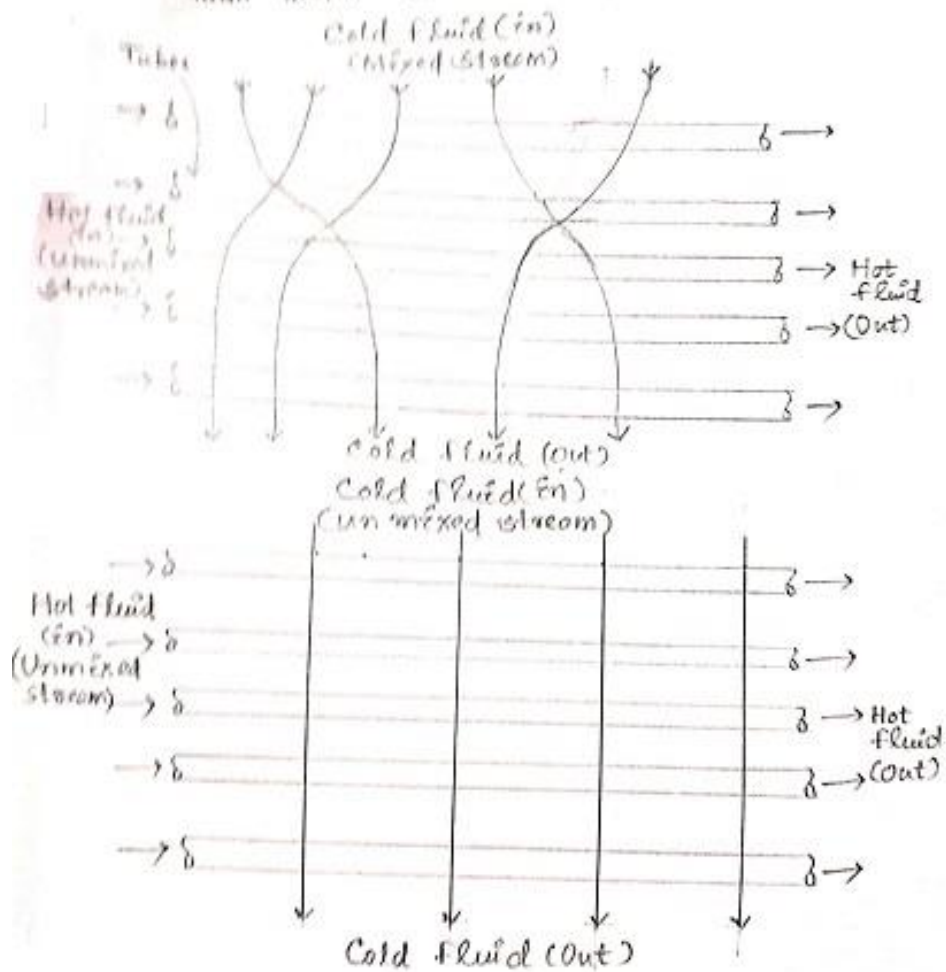 Cold fluid (in)
(Mixed stream)
Tubes
Hot fluid
(in)
(Unmixed
stream)
Hot
fluid
(Out)
Cold fluid (Out)
Cold fluid (in)
(Unmixed stream)
Hot fluid
(in)
(Unmixed
stream)
Hot
fluid
(Out)
Cold fluid (Out)